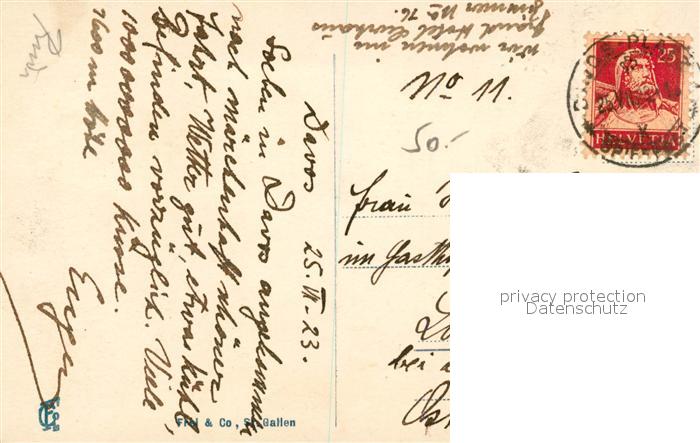 Davos 25. VI. 23.
Soeben in Davos angekommen
nach märchenhaft schöner
Fahrt, Wetter gut, etwas kühl,
Befinden vorzüglich. Viele
1000000000 Küsse.
1600 m höhe
Wir wohnen im
Grand Hotel Kurhaus
Zimmer No 76.
No 11.
50.-
Frau
im Gasth
bei
25
HELVETIA
Frei & Co, St. Gallen
privacy protection
Datenschutz